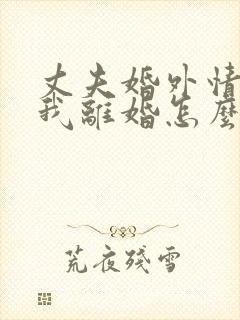 丈夫婚外情
我離婚怎麼
荒夜殘雪